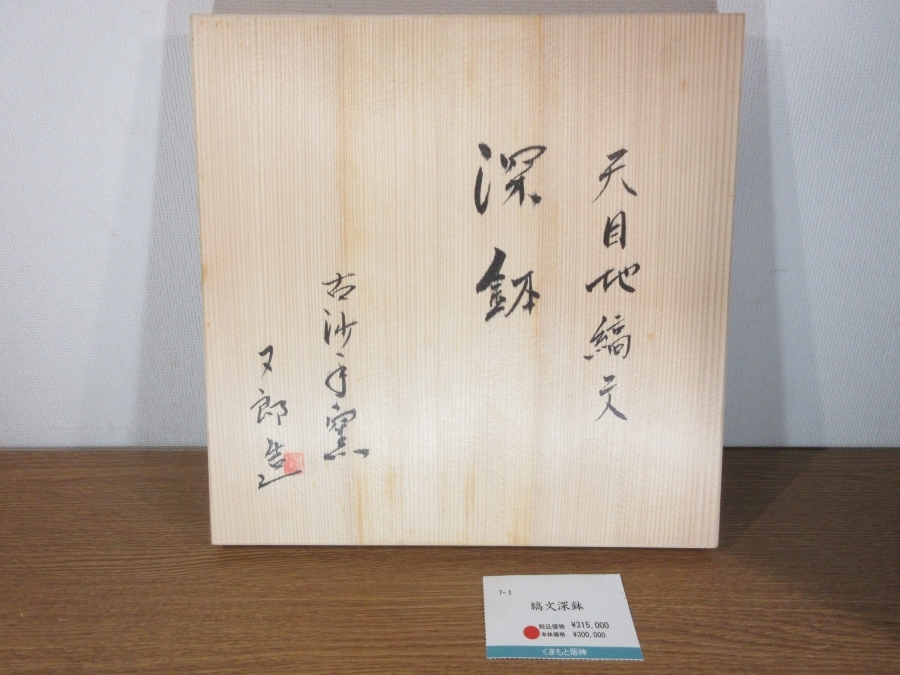 天目地縞文
深鉢
古沙手窯
又郎造
7-1
縞文深鉢
税込価格 ¥315,000
本体価格 ¥300,000
くまもと阪神